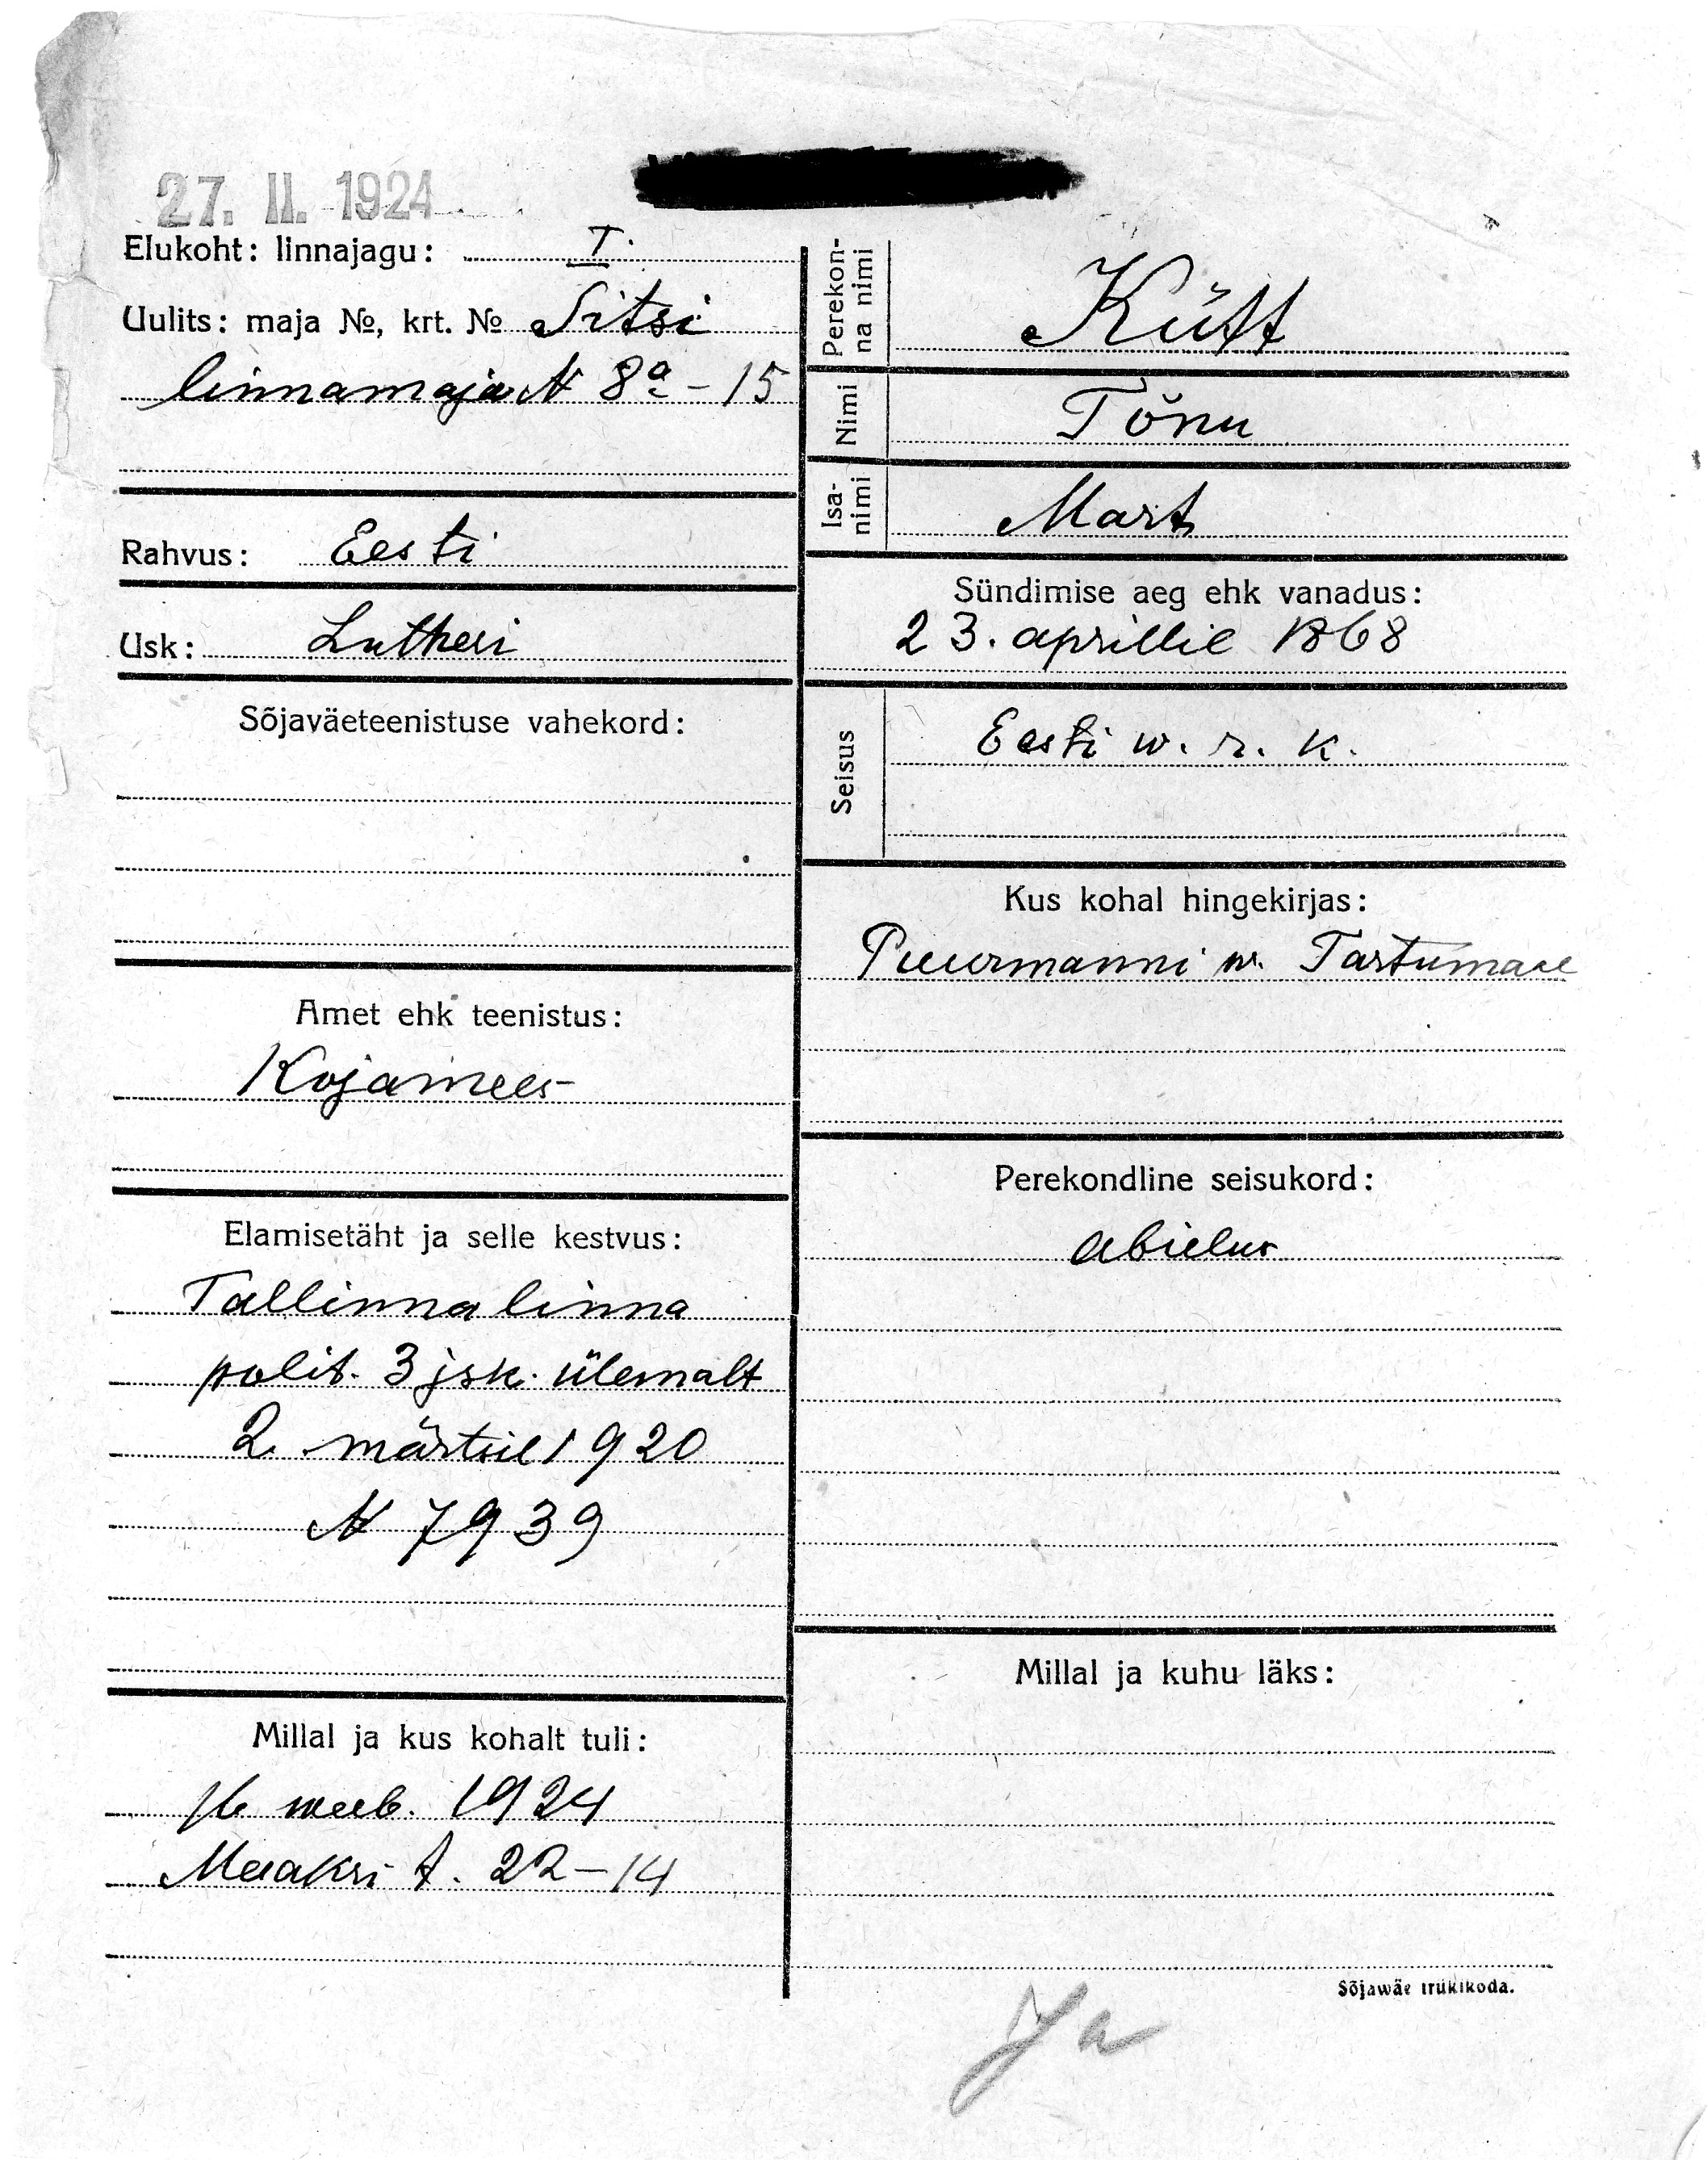 27. II. 1924
Elukoht: linnajagu: I.
Uulits: maja №, krt. № Sitsi
linnamaja N 8a - 15
Rahvus: Eesti
Usk: Lutheri
Sõjaväeteenistuse vahekord:
Amet ehk teenistus:
Kojamees
Elamisetäht ja selle kestvus:
Tallinna linna
polit. 3 jsk. ülemalt
2. märtsil 1920
N 7939
Millal ja kus kohalt tuli:
16 weeb. 1924
Maakri t. 22-14
Perekon-
na nimi
Kütt
Nimi Tõnu
Isa-
nimi
Mart
Sündimise aeg ehk vanadus:
23. aprillil 1868
Seisus
Eesti w. r. k.
Kus kohal hingekirjas:
Puurmanni w. Tartumaal
Perekondline seisukord:
abielus
Millal ja kuhu läks:
Sõjawäe trükikoda.
Ja